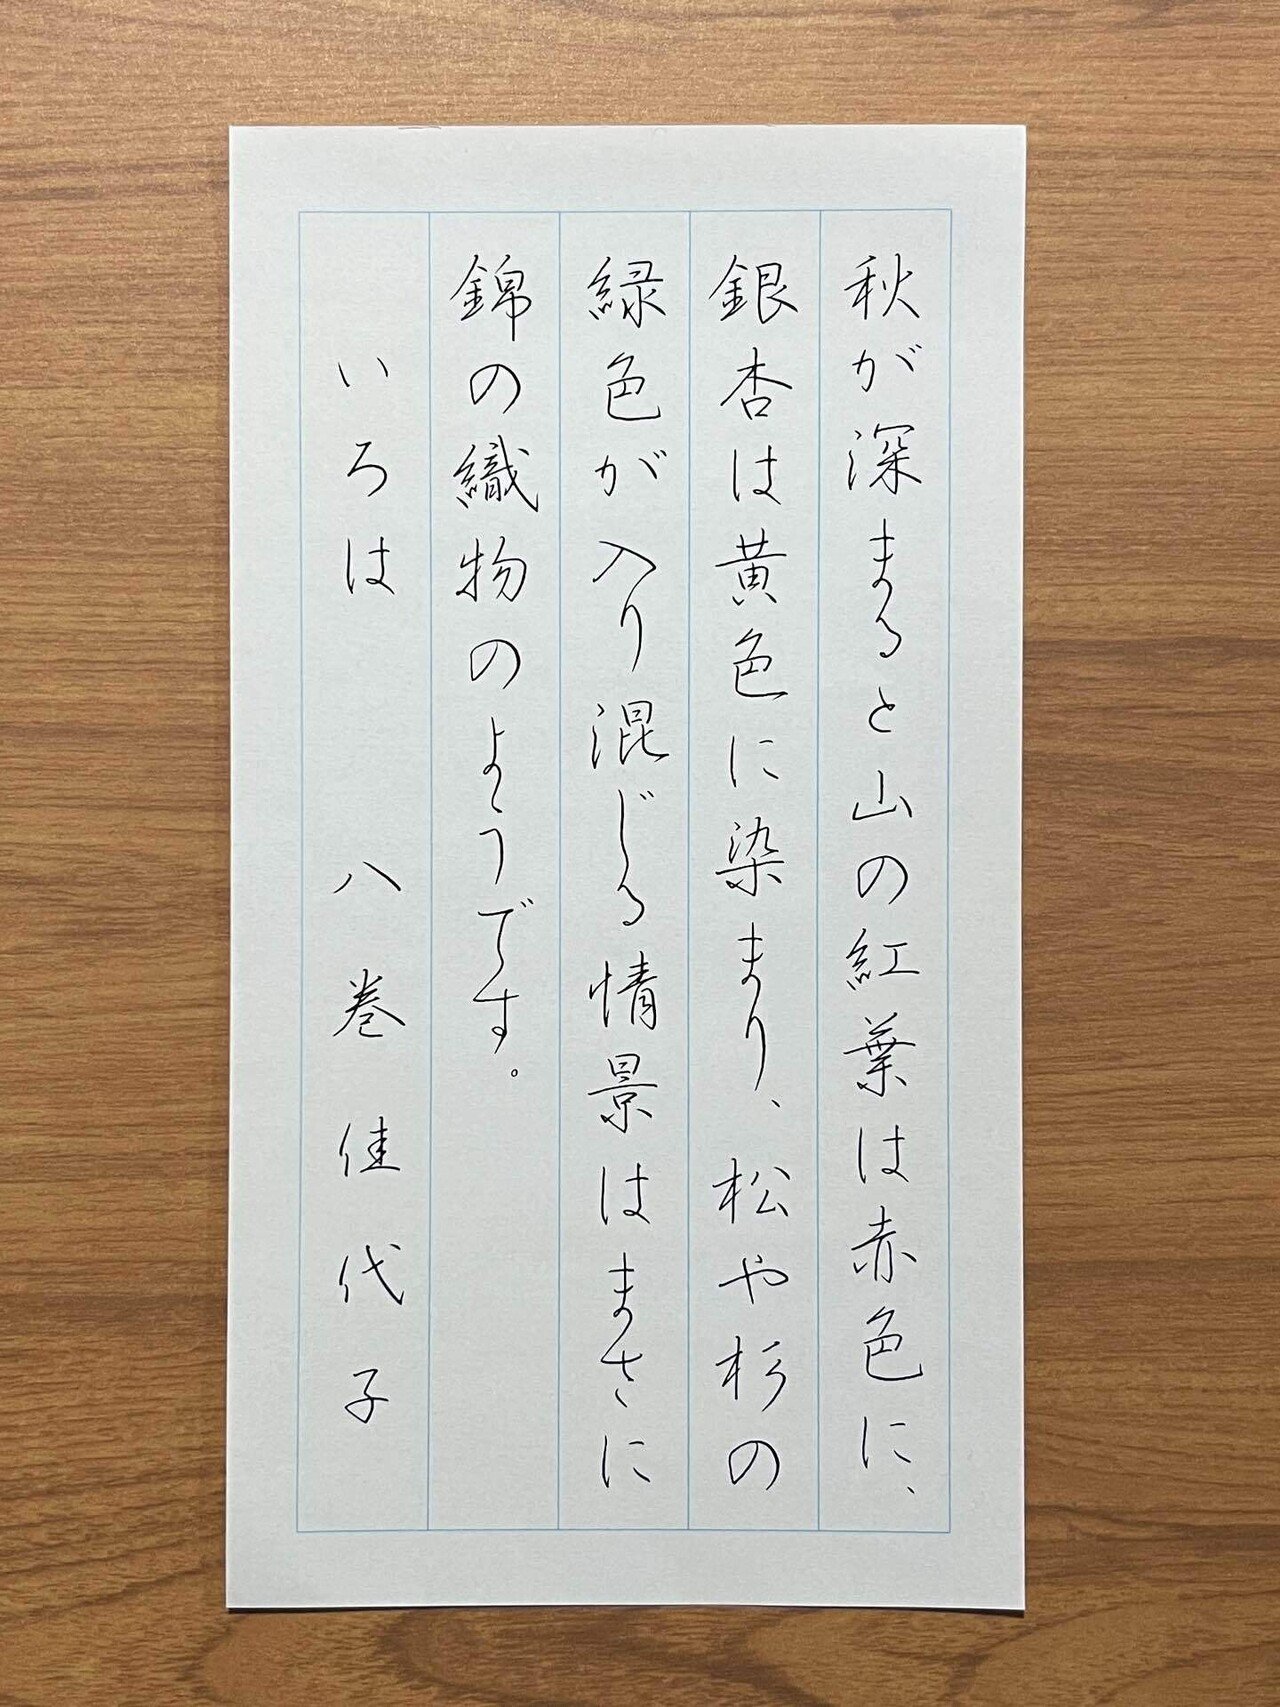 秋が深まると山の紅葉は赤色に、
銀杏は黄色に染まり、松や杉の
緑色が入り混じる情景はまさに
錦の織物のようです。
いろは 八巻佳代子